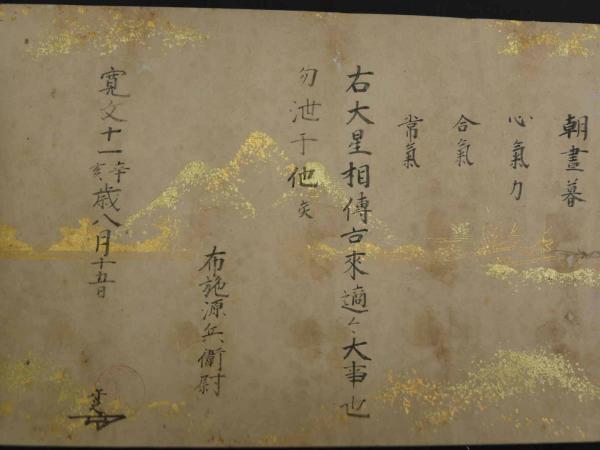 朝晝暮
心氣力
合氣
常氣
右大星相傳古來適々大事也
勿泄于他矣
布施源兵衛尉
寛文十一辛亥歳八月十五日